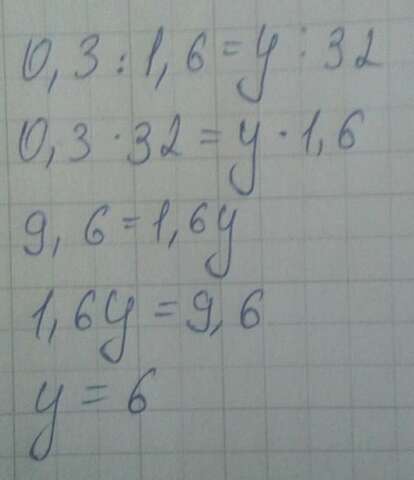 0,3 : 1,6 = y : 32
0,3 · 32 = y · 1,6
9,6 = 1,6y
1,6y = 9,6
y = 6